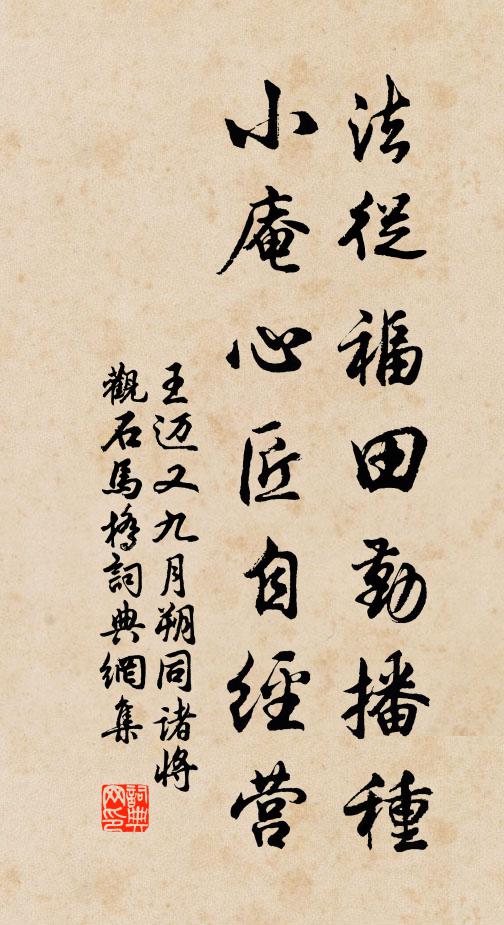 法從福田勤播種
小庵心匠自經营
王迈又九月朔同諸將
觀石馬橋詞典網集
詞典网印